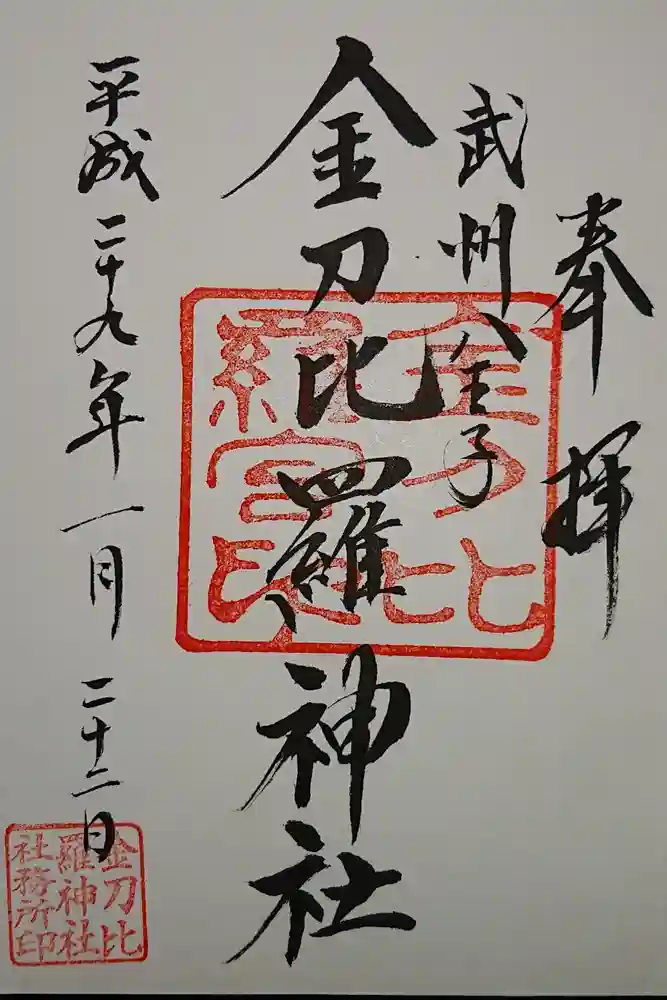 奉拝
武州八王子
金刀比羅神社
金刀比
羅宮印
平成二十九年一月二十二日
金刀比
羅神社
社務所印